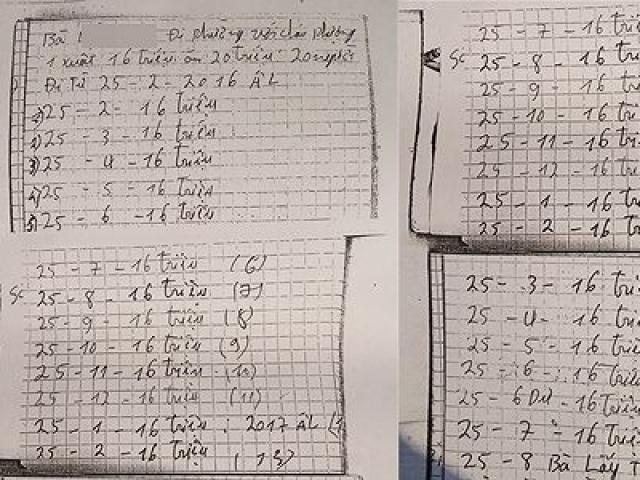 Bà
Đi phường với cháu phương
1 xuất 16 Triệu ăn 20 Triệu 20 người
Đi Từ 25 - 2 - 2016 ÂL
1) 25 - 2 - 16 Triệu
2) 25 - 3 - 16 Triệu
3) 25 - 4 - 16 Triệu
4) 25 - 5 - 16 Triệu
5) 25 - 6 - 16 Triệu
25 - 7 - 16 Triệu (6)
Sc 25 - 8 - 16 Triệu (7)
25 - 9 - 16 Triệu (8)
25 - 10 - 16 Triệu (9)
25 - 11 - 16 Triệu (10)
25 - 12 - 16 Triệu (11)
25 - 1 - 16 Triệu : 2017 ÂL (1
25 - 2 - 16 Triệu (13)
25 - 7 - 16 Triệ
Sc 25 - 8 - 16 Tri
25 - 9 - 16 Tri
25 - 10 - 16 Tri
25 - 11 - 16 Tri
25 - 12 - 16 Tri
25 - 1 - 16 Tr
25 - 2 - 16 Tr
25 - 3 - 16 Tri
25 - 4 - 16 Triệ
25 - 5 - 16 Triệ
25 - 6 - 16 Triệ
25 - 6 Dư - 16 Triệ
25 - 7 - 16 Triệ
25 - 8 Bà Lấy T